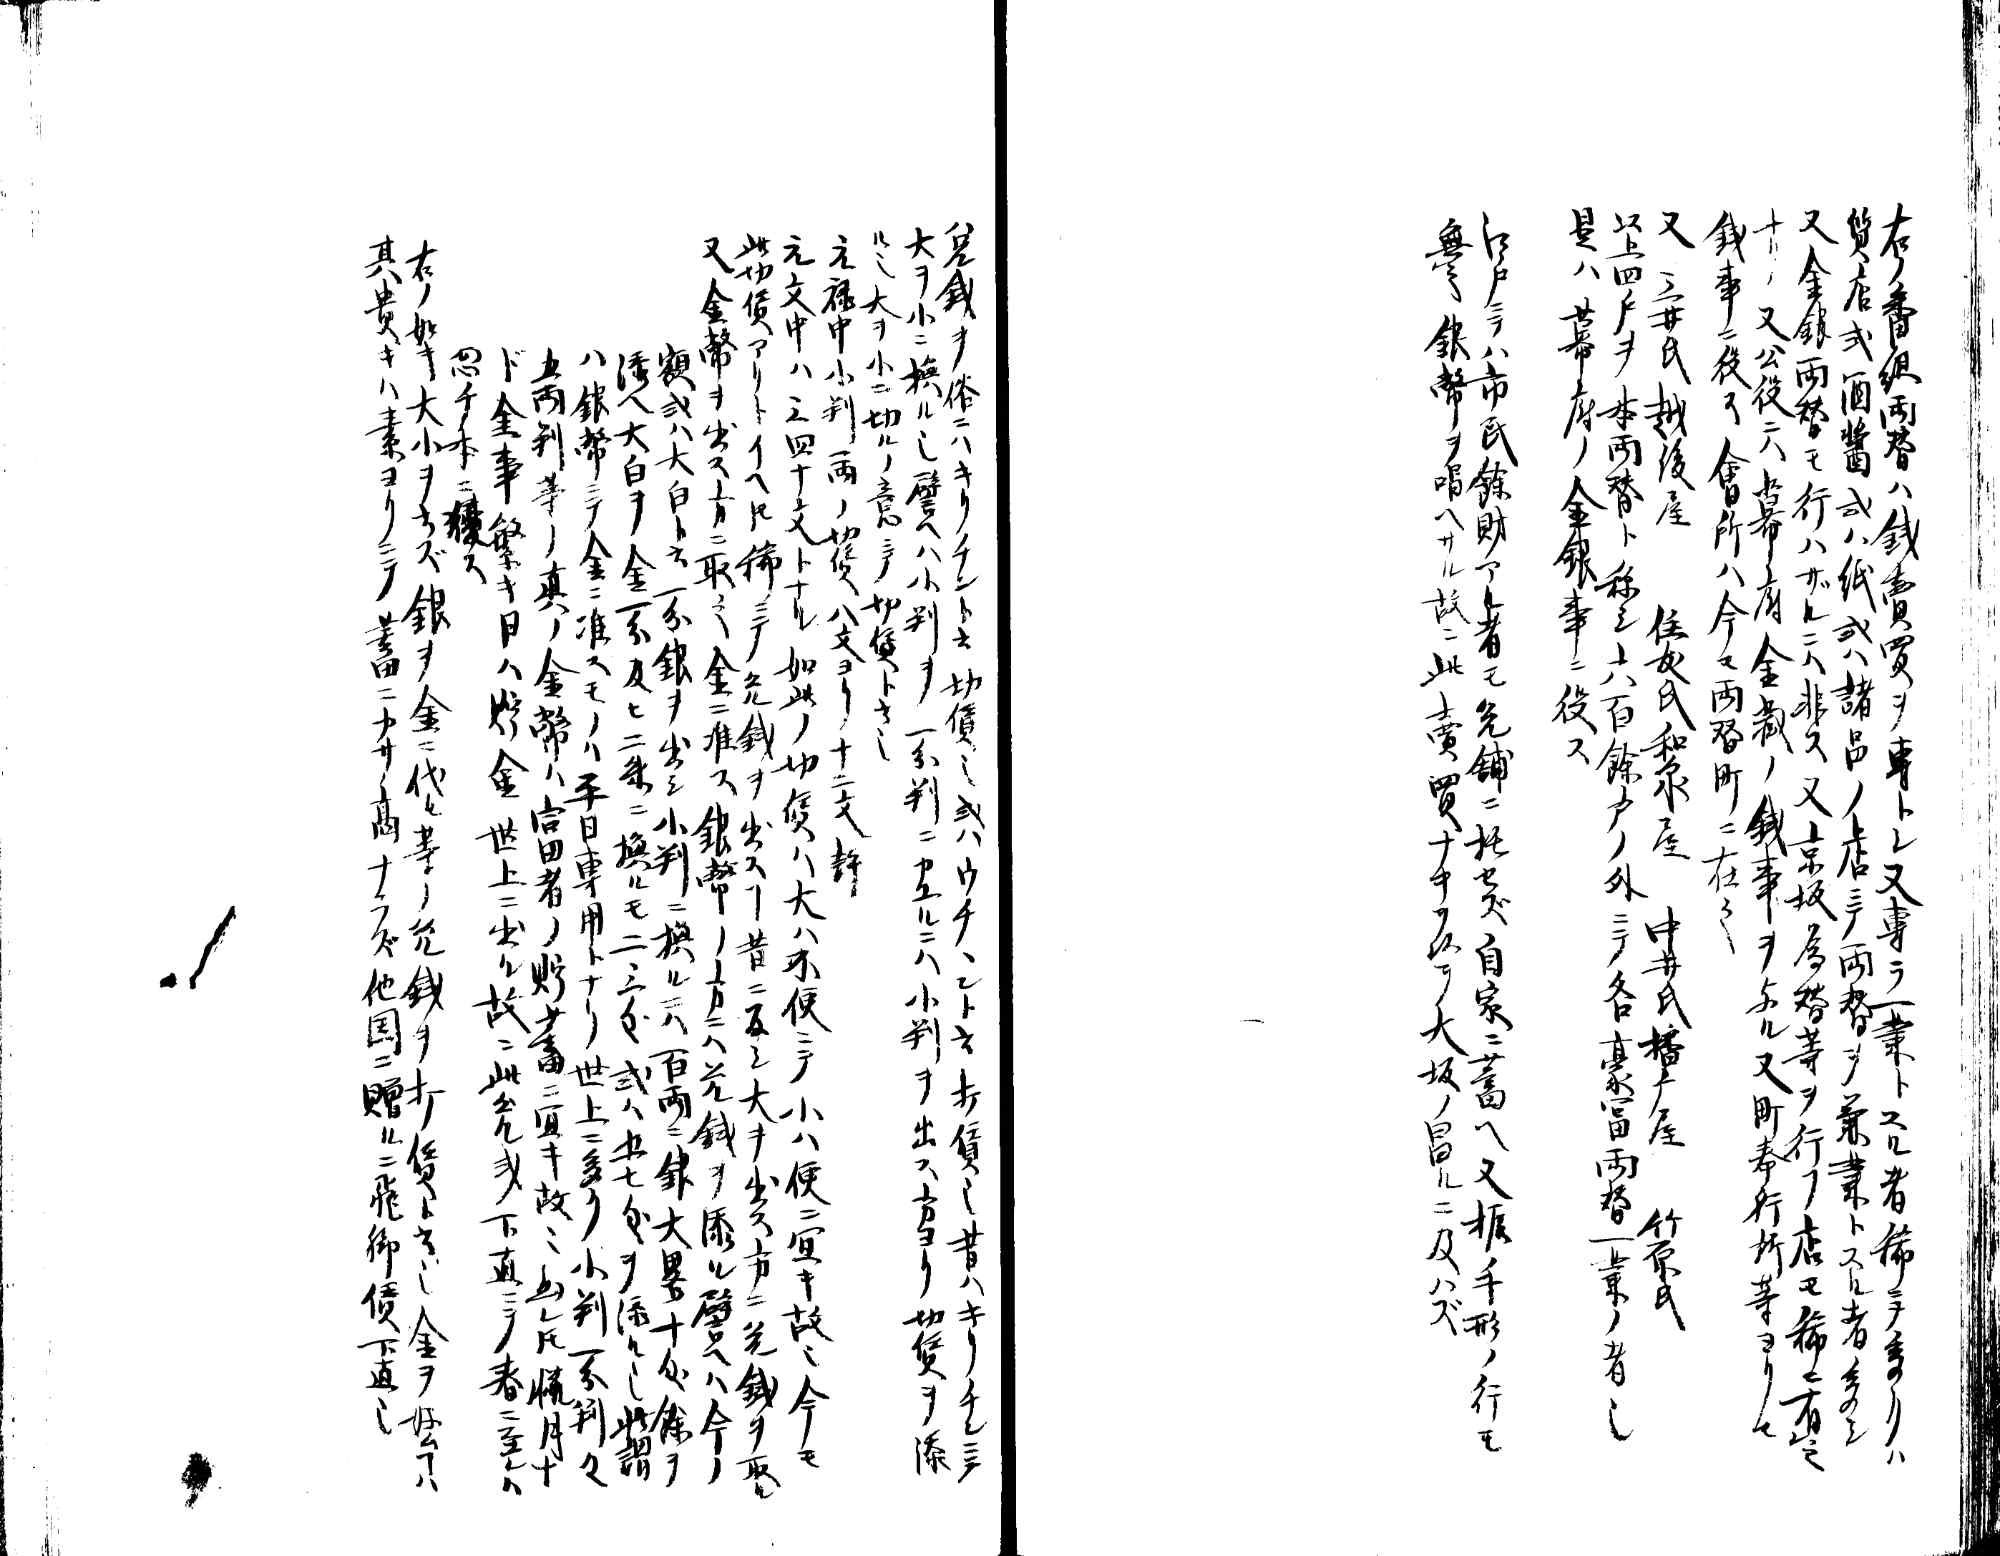 右ノ番組両替ハ銭賣買ヲ専トシ又専ラ一業トスル者稀ニテ多クハ
質店或酒醤或ハ紙或ハ諸品ノ店ニテ両替ヲ兼業トスル者多シ
又金銀両替モ行ハザルニハ非ス又京坂為替等ヲ行フ店モ稀ニ有之
ナリ又公役ニハ幕府金蔵ノ銭事ヲ与ル又町奉行所等ヨリモ
銭事ニ役ス會所ハ今モ両替町ニ在之
又 三井氏越後屋 住友氏和泉屋 中井氏播磨屋 竹原氏
以上四戸ヲ本両替ト称シ六百餘戸ノ外ニテ各豪富両替一業ノ者也
是ハ幕府ノ金銀事ニ役ス
江戸ニテハ市民餘財アル者モ兌舗ニ托セズ自家ニ蓄ヘ又振手形ノ行モ
無之銀幣ヲ唱ヘサル故ニ此賣買ナキヲ以テ大坂ノ昌ルニ及ハズ
兌銭ヲ俗ニハキリチント云切賃也或ハウチンヒト云打賃也昔ハキリチンニテ
大ヲ小ニ換ル也譬ヘハ小判ヲ一分判ニカユルニハ小判ヲ出ス方ヨリ切賃ヲ添
ル也大ヲ小ニ切ルノ意ニテ切賃ト云也
元禄中小判一両ノ切賃八文ヨリ十二文許
元文中ハ三四十文トナル如此ノ切賃ハ大ハ不便ニテ小ハ便ニ宜キ故也今モ
此切賃アリトイヘトモ稀ニテ兌銭ヲ出スコト昔ニ反シ大ヲ出ス方ニ兌銭ヲ取ル
又金幣ヲ出ス方ニ取之金ニ准ス銀幣ノ方ニハ兌銭ヲ添ル譬ヘハ今ノ
額或ハ大白ト云一分銀ヲ出シ小判ニ換ルニハ百両ニ銀大畧十匁餘ヲ
添ヘ大白ヲ金一分及ヒ二朱ニ換ルモ二三匁或ハ五七匁ヲ添ル也此謂
ハ銀幣ニテ金ニ准スモノハ平日専用トナリ世上ニ多ク小判一分判及
五両判等ノ真ノ金幣ハ富者ノ貯蓄ニ宜キ故也然レトモ臘月ナ
ド金事繁キ日ハ貯金世上ニ出ル故ニ此兌或ノ下直ニテ春ニ至レハ
忽チ本ニ復ス
右ノ如キ大小ヲ云ズ銀ヲ金ニ代ル等ノ兌銭ヲ打賃ト云也金ヲ好ムコトハ
其貴キハ素ヨリニテ蓄ニカサ高ナラズ他国ニ贈ルニ飛脚賃下直也